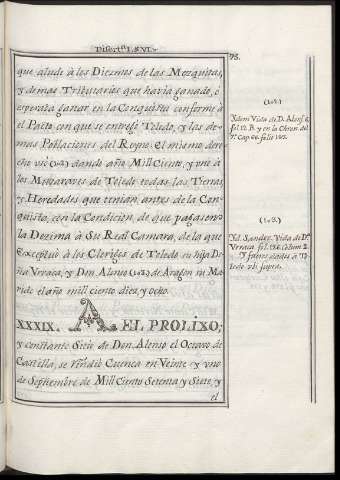 Disert.n LXVI.
75.
que alude à los Diezmos de las Mezquitas,
y demas Tributarios que havia ganado, ò
esperaba ganar en la Conquista conforme à
el Pacto con que se entregò Toledo, y las de-
mas Poblaciones del Reyno. El mismo dere
cho viò (102) dando año Mill Ciento, y uno à
los Mozaraves de Toledo todas las Tierras,
y Heredades que tenian, antes de la Con-
quista, con la Condicion, de que pagasen
la Dezima à Su Real Camara, de la que
Exceptuò à los Clerigos de Toledo su hija Do-
ña Vrraca, y Don Alonso (103) de Aragon su Ma
rido el año mill ciento diez, y ocho.
XXXIX. A EL PROLIXO;
y constante Sitio de Don Alonso el Octavo de
Castilla, se rindiò Cuenca en Veinte y uno
de Septiembre de Mill Ciento Setenta y Siete, y
el
(102)
Idem Vida de D. Alons. 6.
fol. 12. B. y en la Chron. del
7.º Cap. 66. folio 102.
(103)
Id. Sandov. Vida de D.ª
Vrraca fol. 126. Colum. 2.
supra.